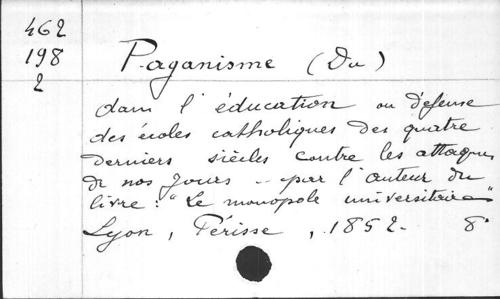 462
198
2
Paganisme (Du)
dans l'éducation ou défense
des écoles catholiques des quatre
derniers siècles contre les attaques
de nos jours -- par l'auteur du
livre : "Le monopole universitaire"
Lyon, Périsse, 1852. 8°